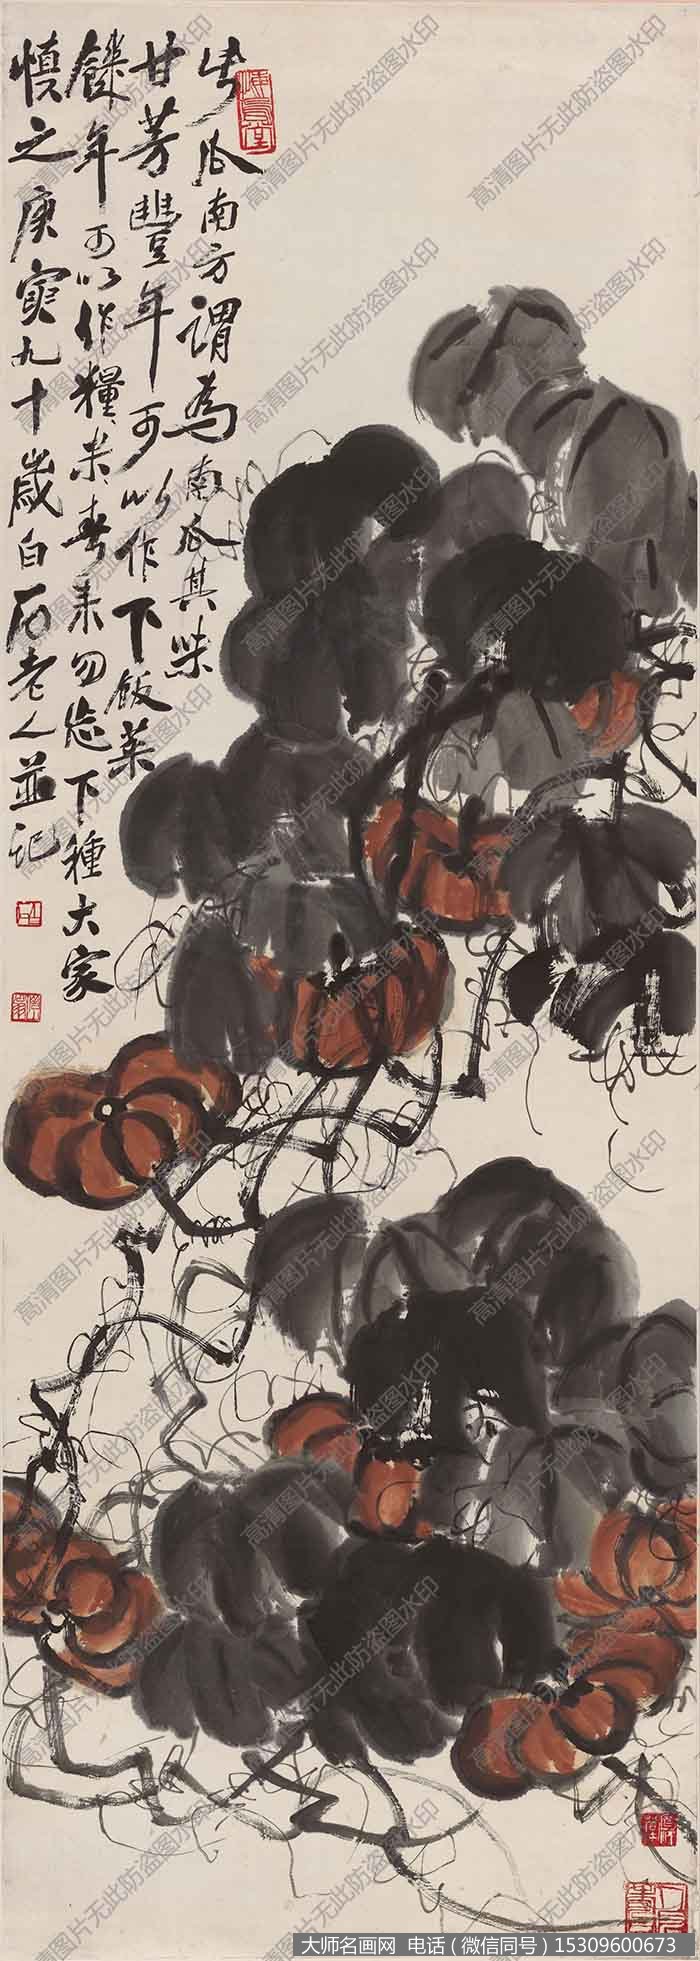 此瓜南方謂為南瓜其味
甘芳豐年可以作下飯菜
饑年可以作糧米春来勿忘下種大家
慎之庚寅九十歲白石老人並記
高清图片无此防盗图水印
大师名画网 电话(微信同号)15309600673